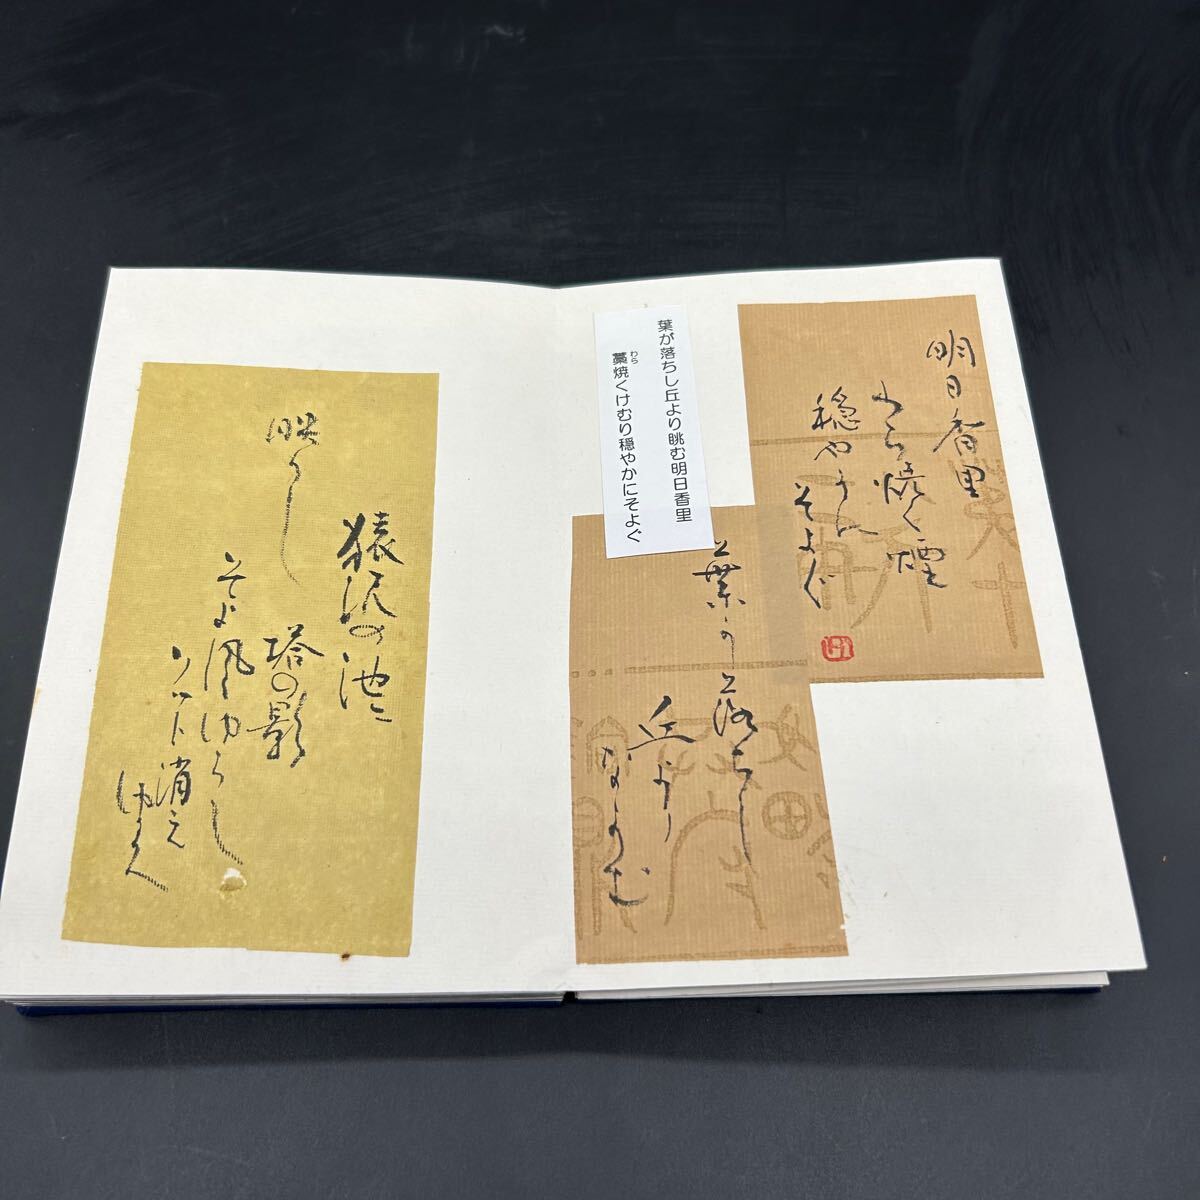 明日香里
わら焼く煙
穏やかに
そよぐ
葉が落ちし
丘より
ながむ
葉が落ちし丘より眺む明日香里
わら
藁焼くけむり穏やかにそよぐ
猿沢の池に
塔の影
そよ風ゆらし
ソット消え